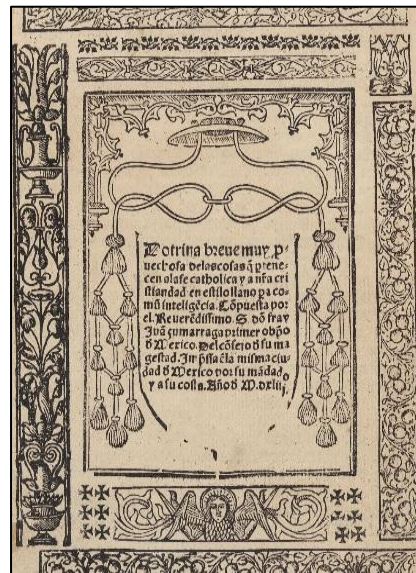 Dotrina breue muy p̱-
uechosa delascosas q̃ ꝑtene-
cen alafe catholica y a nr̃a cri
stiandad en estilo llano pa co-
mũ inteligẽcia. Cõpuesta por
el. Reuerẽdissimo. S. dõ fray
Juã çumarraga primer obp̃o
đ Mexico. Del cõsejo đ su ma
gestad. Imp̃ssa ẽla misma ciu-
dad đ Mexico por su mãdado
y a su costa. Año đ M.dxliij